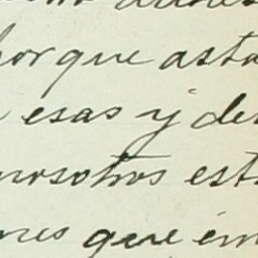 porque asta
esas y de
nosotros est
que em